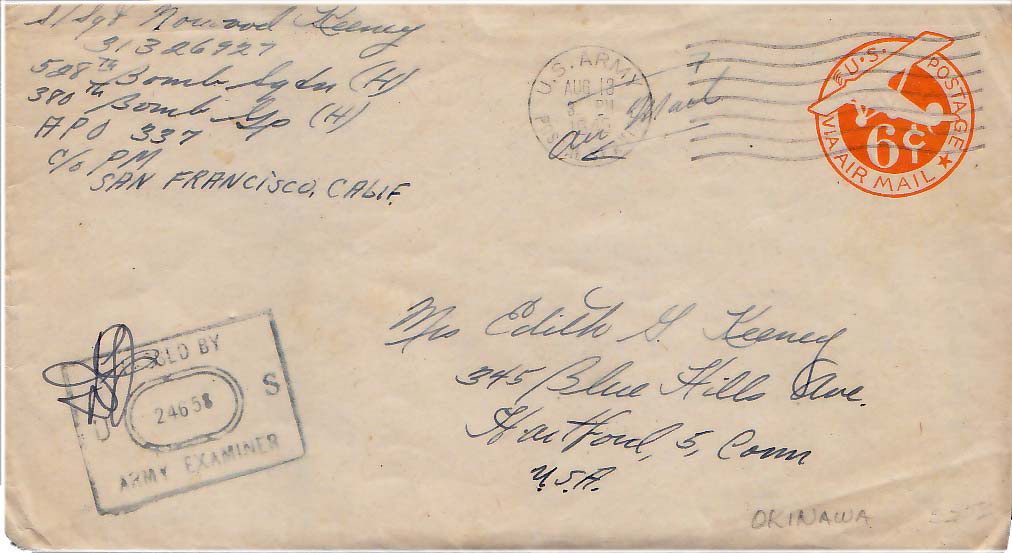 S/Sgt Norwood Keeney
31326927
528TH Bomb Sqdn (H)
380TH Bomb Gp (H)
APO 337
c/o PM
SAN FRANCISCO, CALIF.
U.S. ARMY
AUG 13
PM
Air Mail
U.S. POSTAGE
6¢
VIA AIR MAIL
Mrs Edith G. Keeney
345 Blue Hills Ave.
Hartford, 5, Conn
U.S.A.
BY
U 24658 S
ARMY EXAMINER
OKINAWA